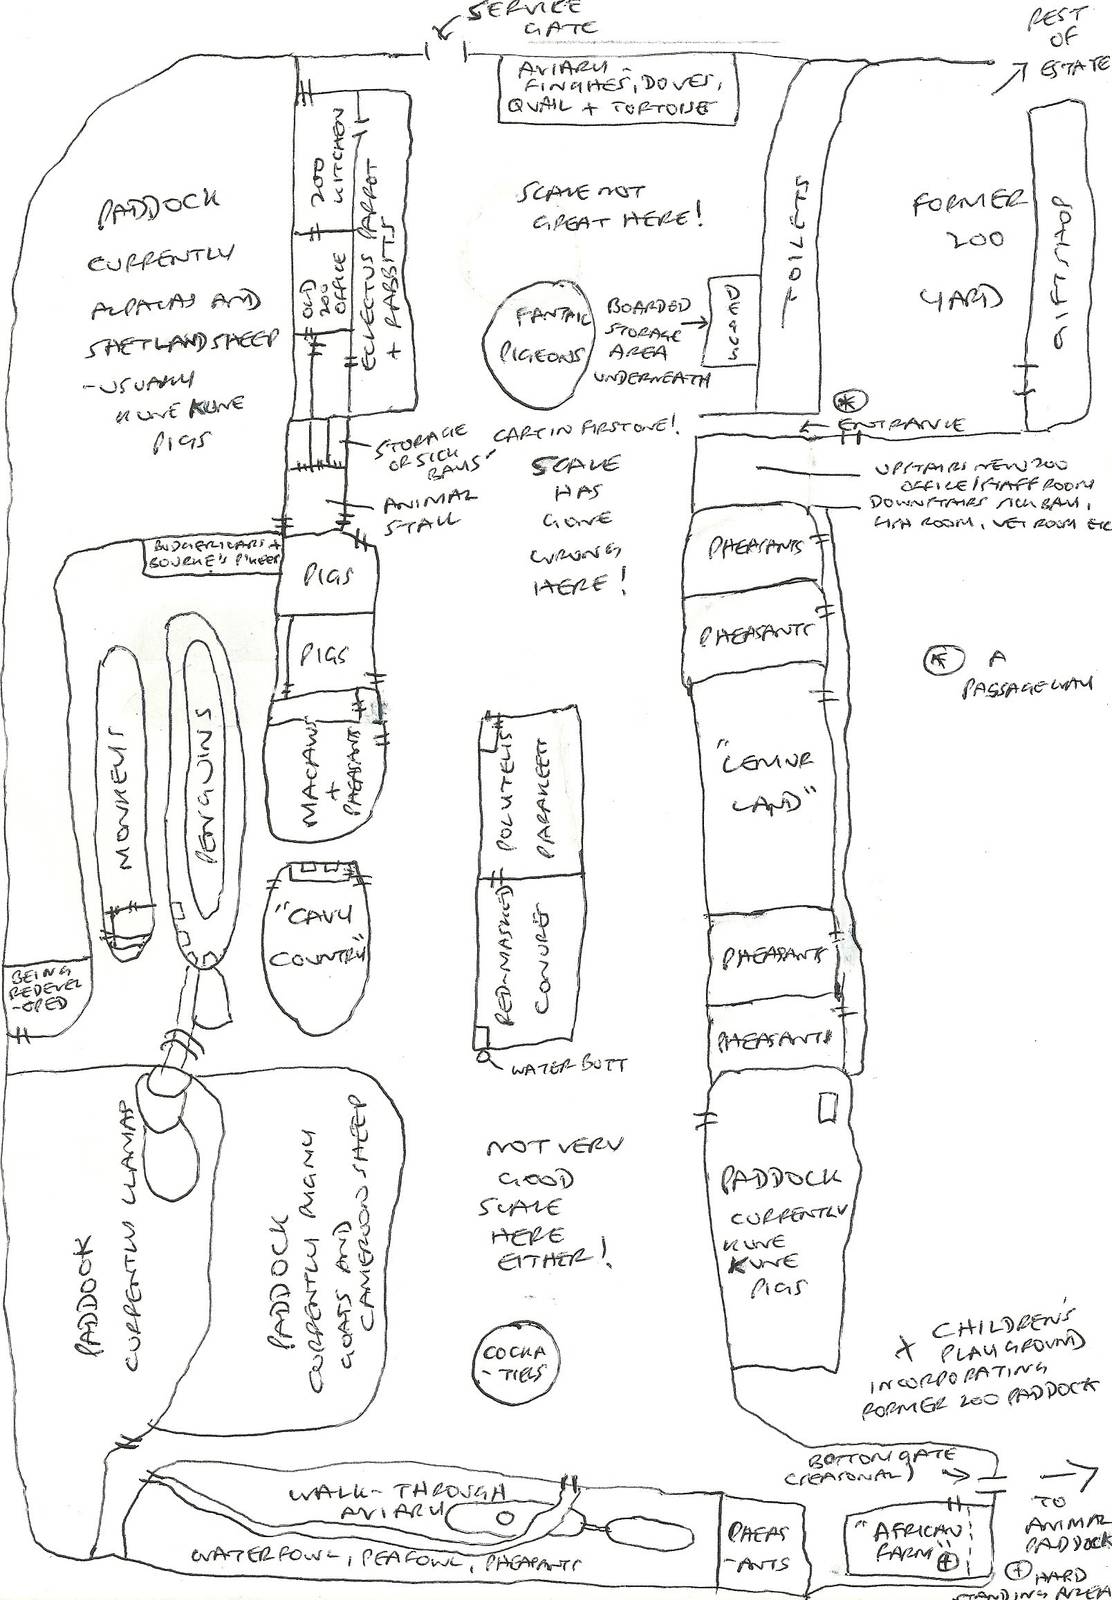 SERVICE
GATE
REST
OF
ESTATE
AVIARY -
FINCHES, DOVES,
QUAIL + TORTOISE
ZOO
KITCHEN
OLD
ZOO
OFFICE
ECLECTUS PARROT
+ RABBITS
PADDOCK
CURRENTLY
ALPACAS AND
SHETLAND SHEEP
- USUALLY
KUNE KUNE
PIGS
SCALE NOT
GREAT HERE!
TOILETS
FORMER
ZOO
YARD
GIFTSHOP
FANTAIL
PIGEONS
BOARDED
STORAGE
AREA
UNDERNEATH
ENTRANCE
STORAGE
OR SICK
BAYS
CART IN FIRST ONE!
ANIMAL
STALL
SCALE
HAS
GONE
WRONG
HERE!
UPSTAIRS NEW ZOO
OFFICE/STAFF ROOM
DOWNSTAIRS SICK BAY,
FISH ROOM, VET ROOM ETC
BUDGERIGARS +
BOURKE'S P'KEETS
PIGS
PIGS
PHEASANTS
PHEASANTS
* A
PASSAGEWAY
MONKEYS
PENGUINS
MACAWS
+
PHEASANTS
POLYTELIS
PARAKEETS
"LEMUR
LAND"
"CAVY
COUNTRY"
RED-MASKED
CONURES
PHEASANTS
BEING
REDEVEL
-OPED
PHEASANTS
WATER BUTT
PADDOCK
CURRENTLY LLAMAS
PADDOCK
CURRENTLY PYGMY
GOATS AND
CAMEROON SHEEP
NOT VERY
GOOD
SCALE
HERE
EITHER!
PADDOCK
CURRENTLY
KUNE
KUNE
PIGS
COCKA
-TIELS
+ CHILDREN'S
PLAYGROUND
INCORPORATING
FORMER ZOO PADDOCK
BOTTOM GATE
(SEASONAL)
WALK-THROUGH
AVIARY
WATERFOWL, PEAFOWL, PHEASANTS
PHEAS
-ANTS
"AFRICAN
FARM" +
TO
ANIMAL
PADDOCK
+ HARD
STANDING AREA